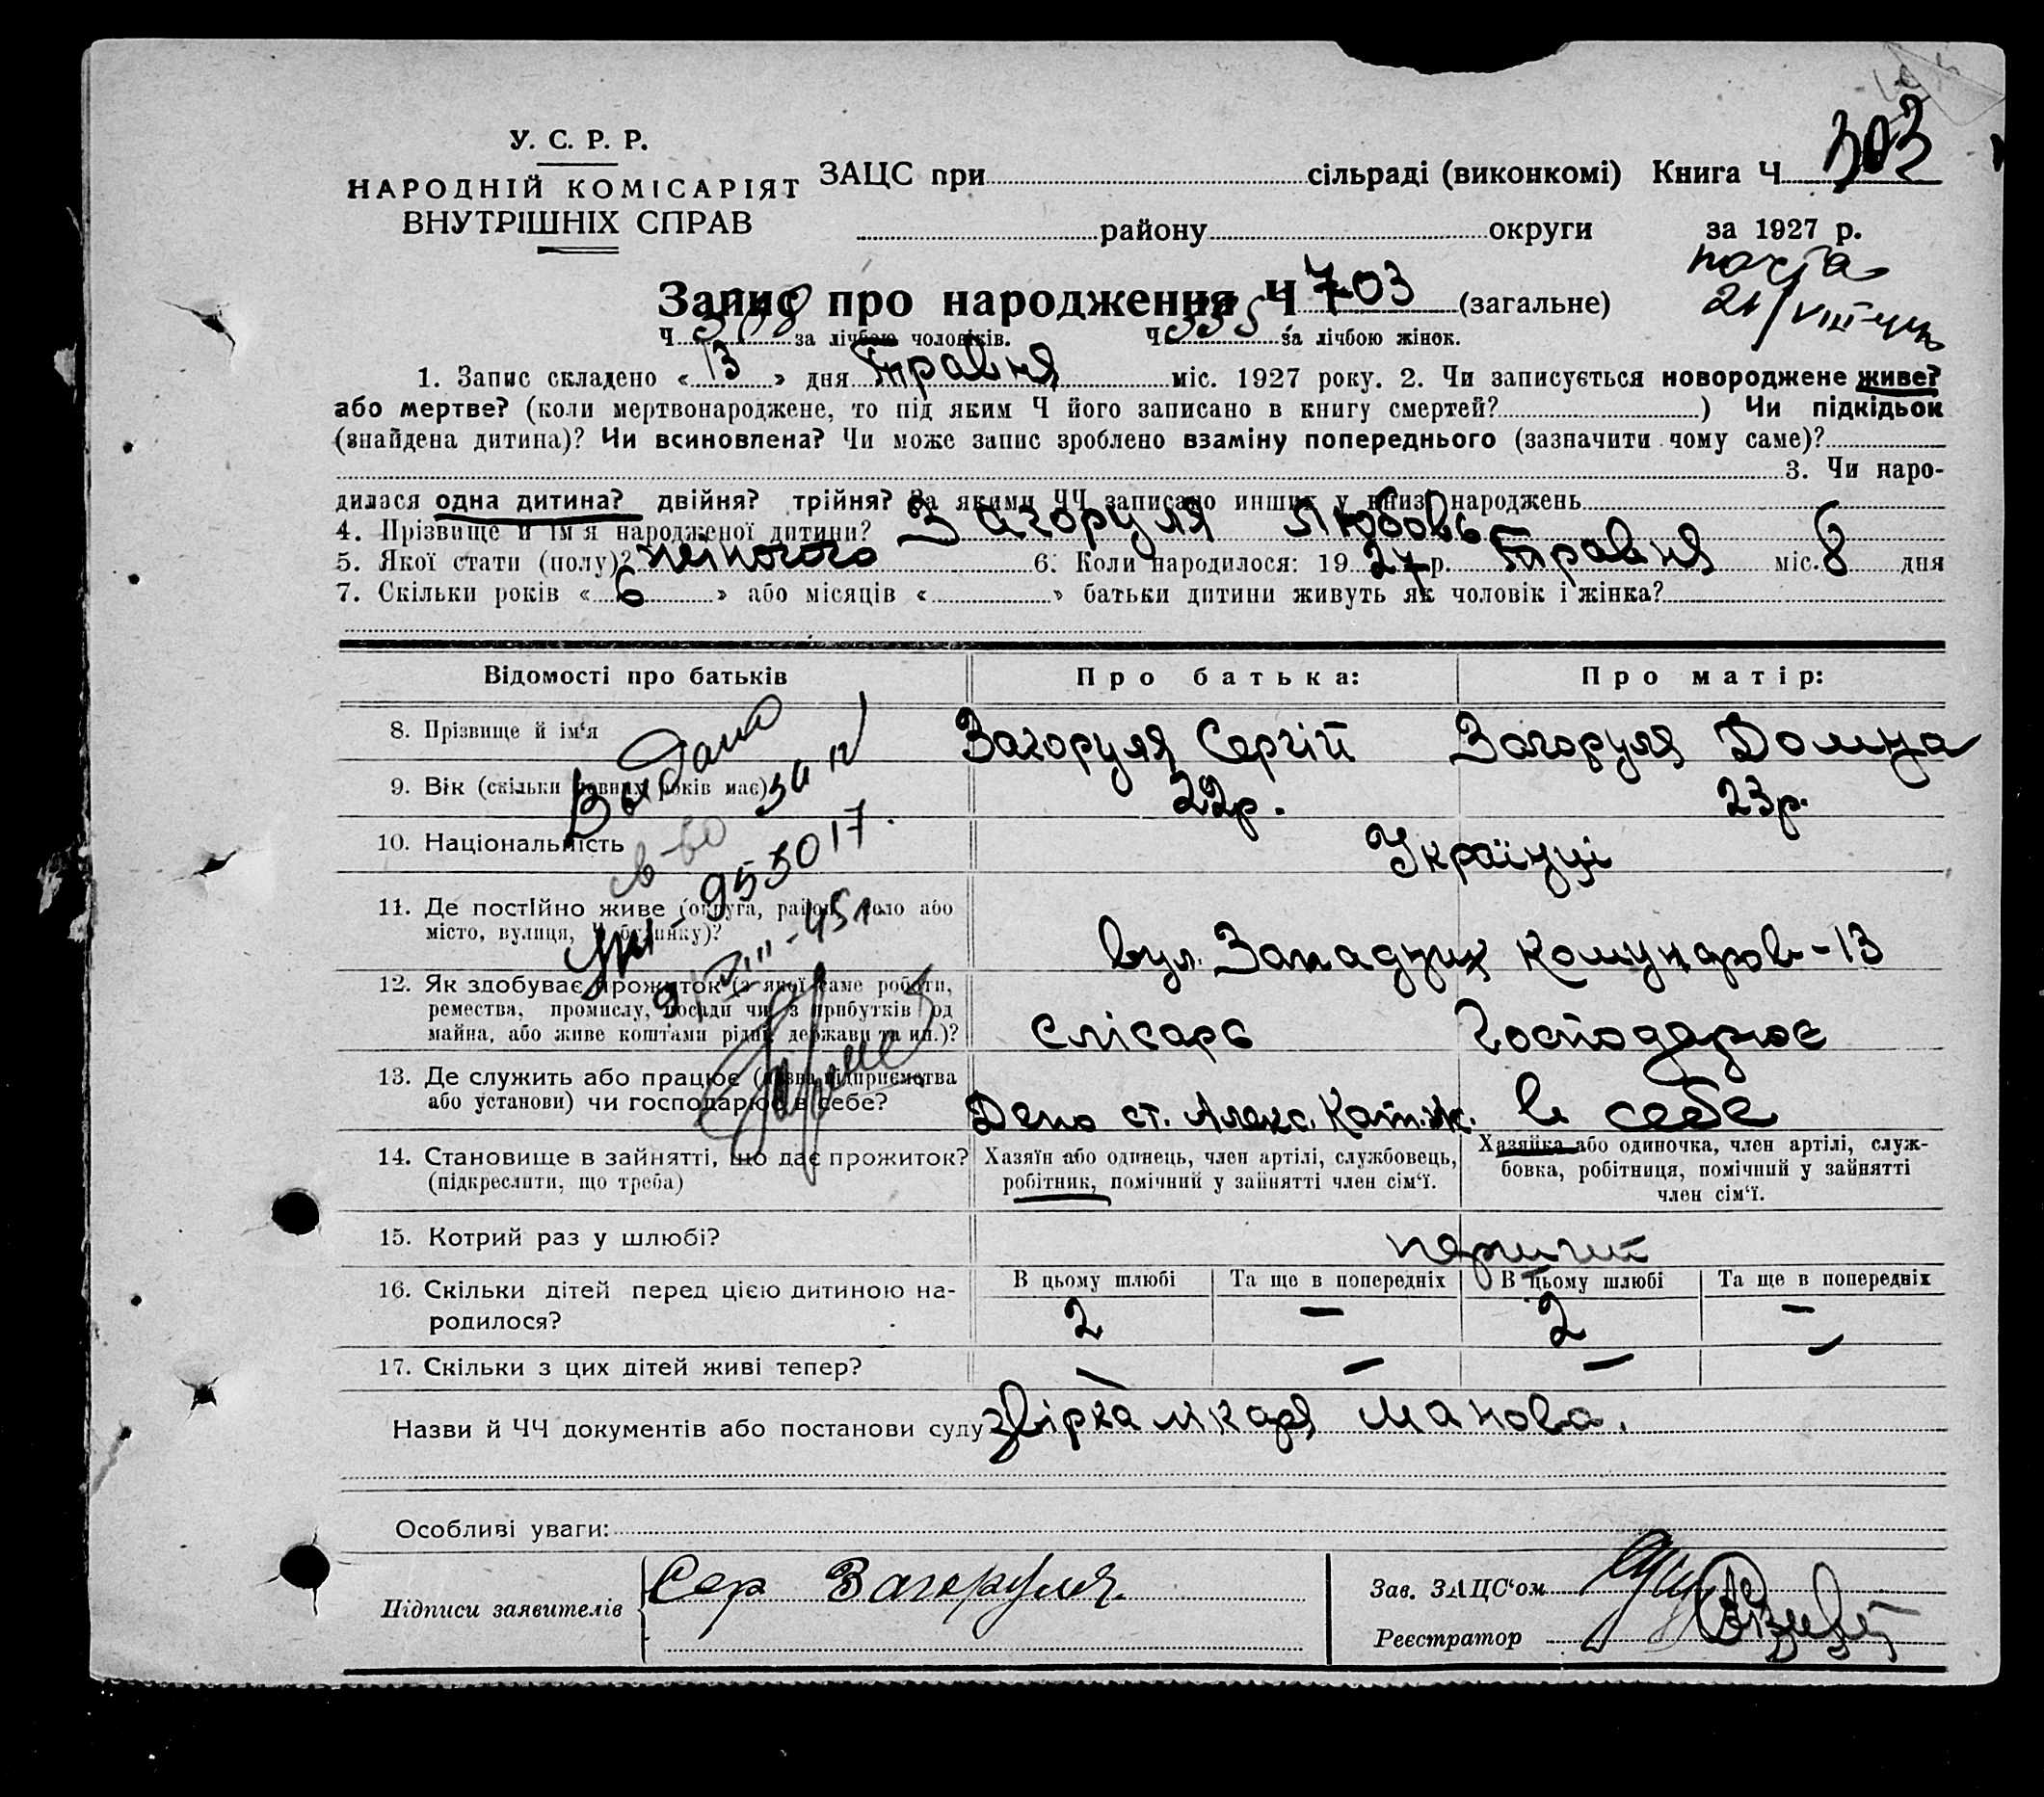 У. С. Р. Р.
НАРОДНІЙ КОМІСАРІЯТ
ВНУТРІШНІХ СПРАВ
ЗАЦС при сільраді (виконкомі) Книга Ч 303
району округи за 1927 р.
Запис про народження Ч 703 (загальне)
Ч за лічбою чоловіків. Ч 335 за лічбою жінок.
1. Запис складено « 13 » дня Травня міс. 1927 року. 2. Чи записується новороджене живе?
або мертве? (коли мертвонароджене, то під яким Ч його записано в книгу смертей? ) Чи підкідьок
(знайдена дитина)? Чи всиновлена? Чи може запис зроблено взаміну попереднього (зазначити чому саме)?
3. Чи наро-
дилася одна дитина? двійня? трійня? За якими ЧЧ записано инших у книзі народжень
4. Прізвище й ім'я народженої дитини? Загоруля Любовь
5. Якої стати (полу)? жіночого 6. Коли народилося: 1927 р. Травня міс. 8 дня
7. Скільки років « 6 » або місяців « » батьки дитини живуть як чоловік і жінка?
Відомості про батьків Про батька: Про матір:
8. Прізвище й ім'я Загоруля Сергій Загоруля Домна
9. Вік (скільки повних років має) 22р. 23р.
10. Національність Українці
11. Де постійно живе (округа, район, село або
місто, вулиця, Ч будинку)? вул. Западних Комунаров-13
12. Як здобуває прожиток (з якої саме роботи,
ремества, промислу, посади чи з прибутків од
майна, або живе коштами рідні, держави та ин.)? Слісарь Господарює
13. Де служить або працює (назва підприємства
або установи) чи господарює в себе? Депо ст. Алекс. Кат. ж. в себе
14. Становище в зайнятті, що дає прожиток?
(підкреслити, що треба)
Хазяїн або одинець, член артілі, службовець,
робітник, помічний у зайнятті член сім'ї.
Хазяйка або одиночка, член артілі, служ-
бовка, робітниця, помічний у зайнятті
член сім'ї.
15. Котрий раз у шлюбі? перший
16. Скільки дітей перед цією дитиною на-
родилося?
В цьому шлюбі Та ще в попередніх В цьому шлюбі Та ще в попередніх
2 — 2 —
17. Скільки з цих дітей живі тепер? — — — —
Назви й ЧЧ документів або постанови суду звірка лікаря Манова.
Особливі уваги:
Підписи заявителів Сер Загоруля.
Зав. ЗАЦС'ом
Реєстратор
Выдано
в-во
955017